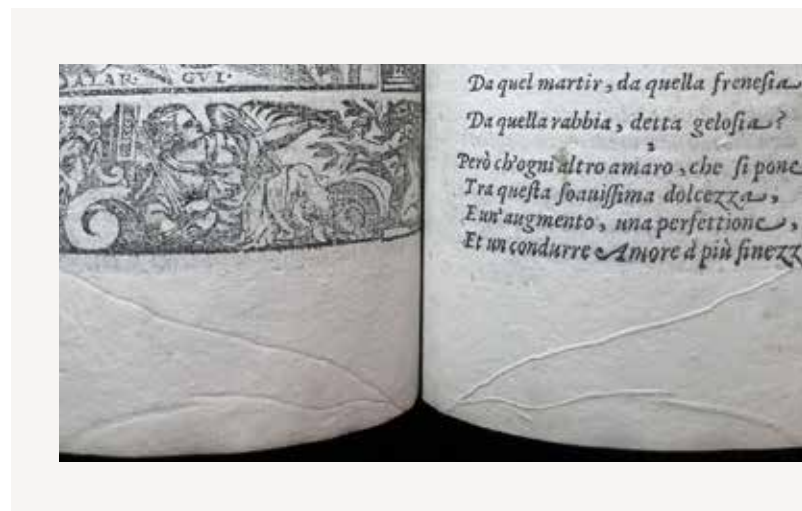 GVI.
Da quel martir, da quella frenesia
Da quella rabbia, detta gelosia?
2
Però ch'ogni altro amaro, che si pone
Tra questa soauissima dolcezza,
E un'augmento, una perfettione,
Et un condurre Amore à più finezz